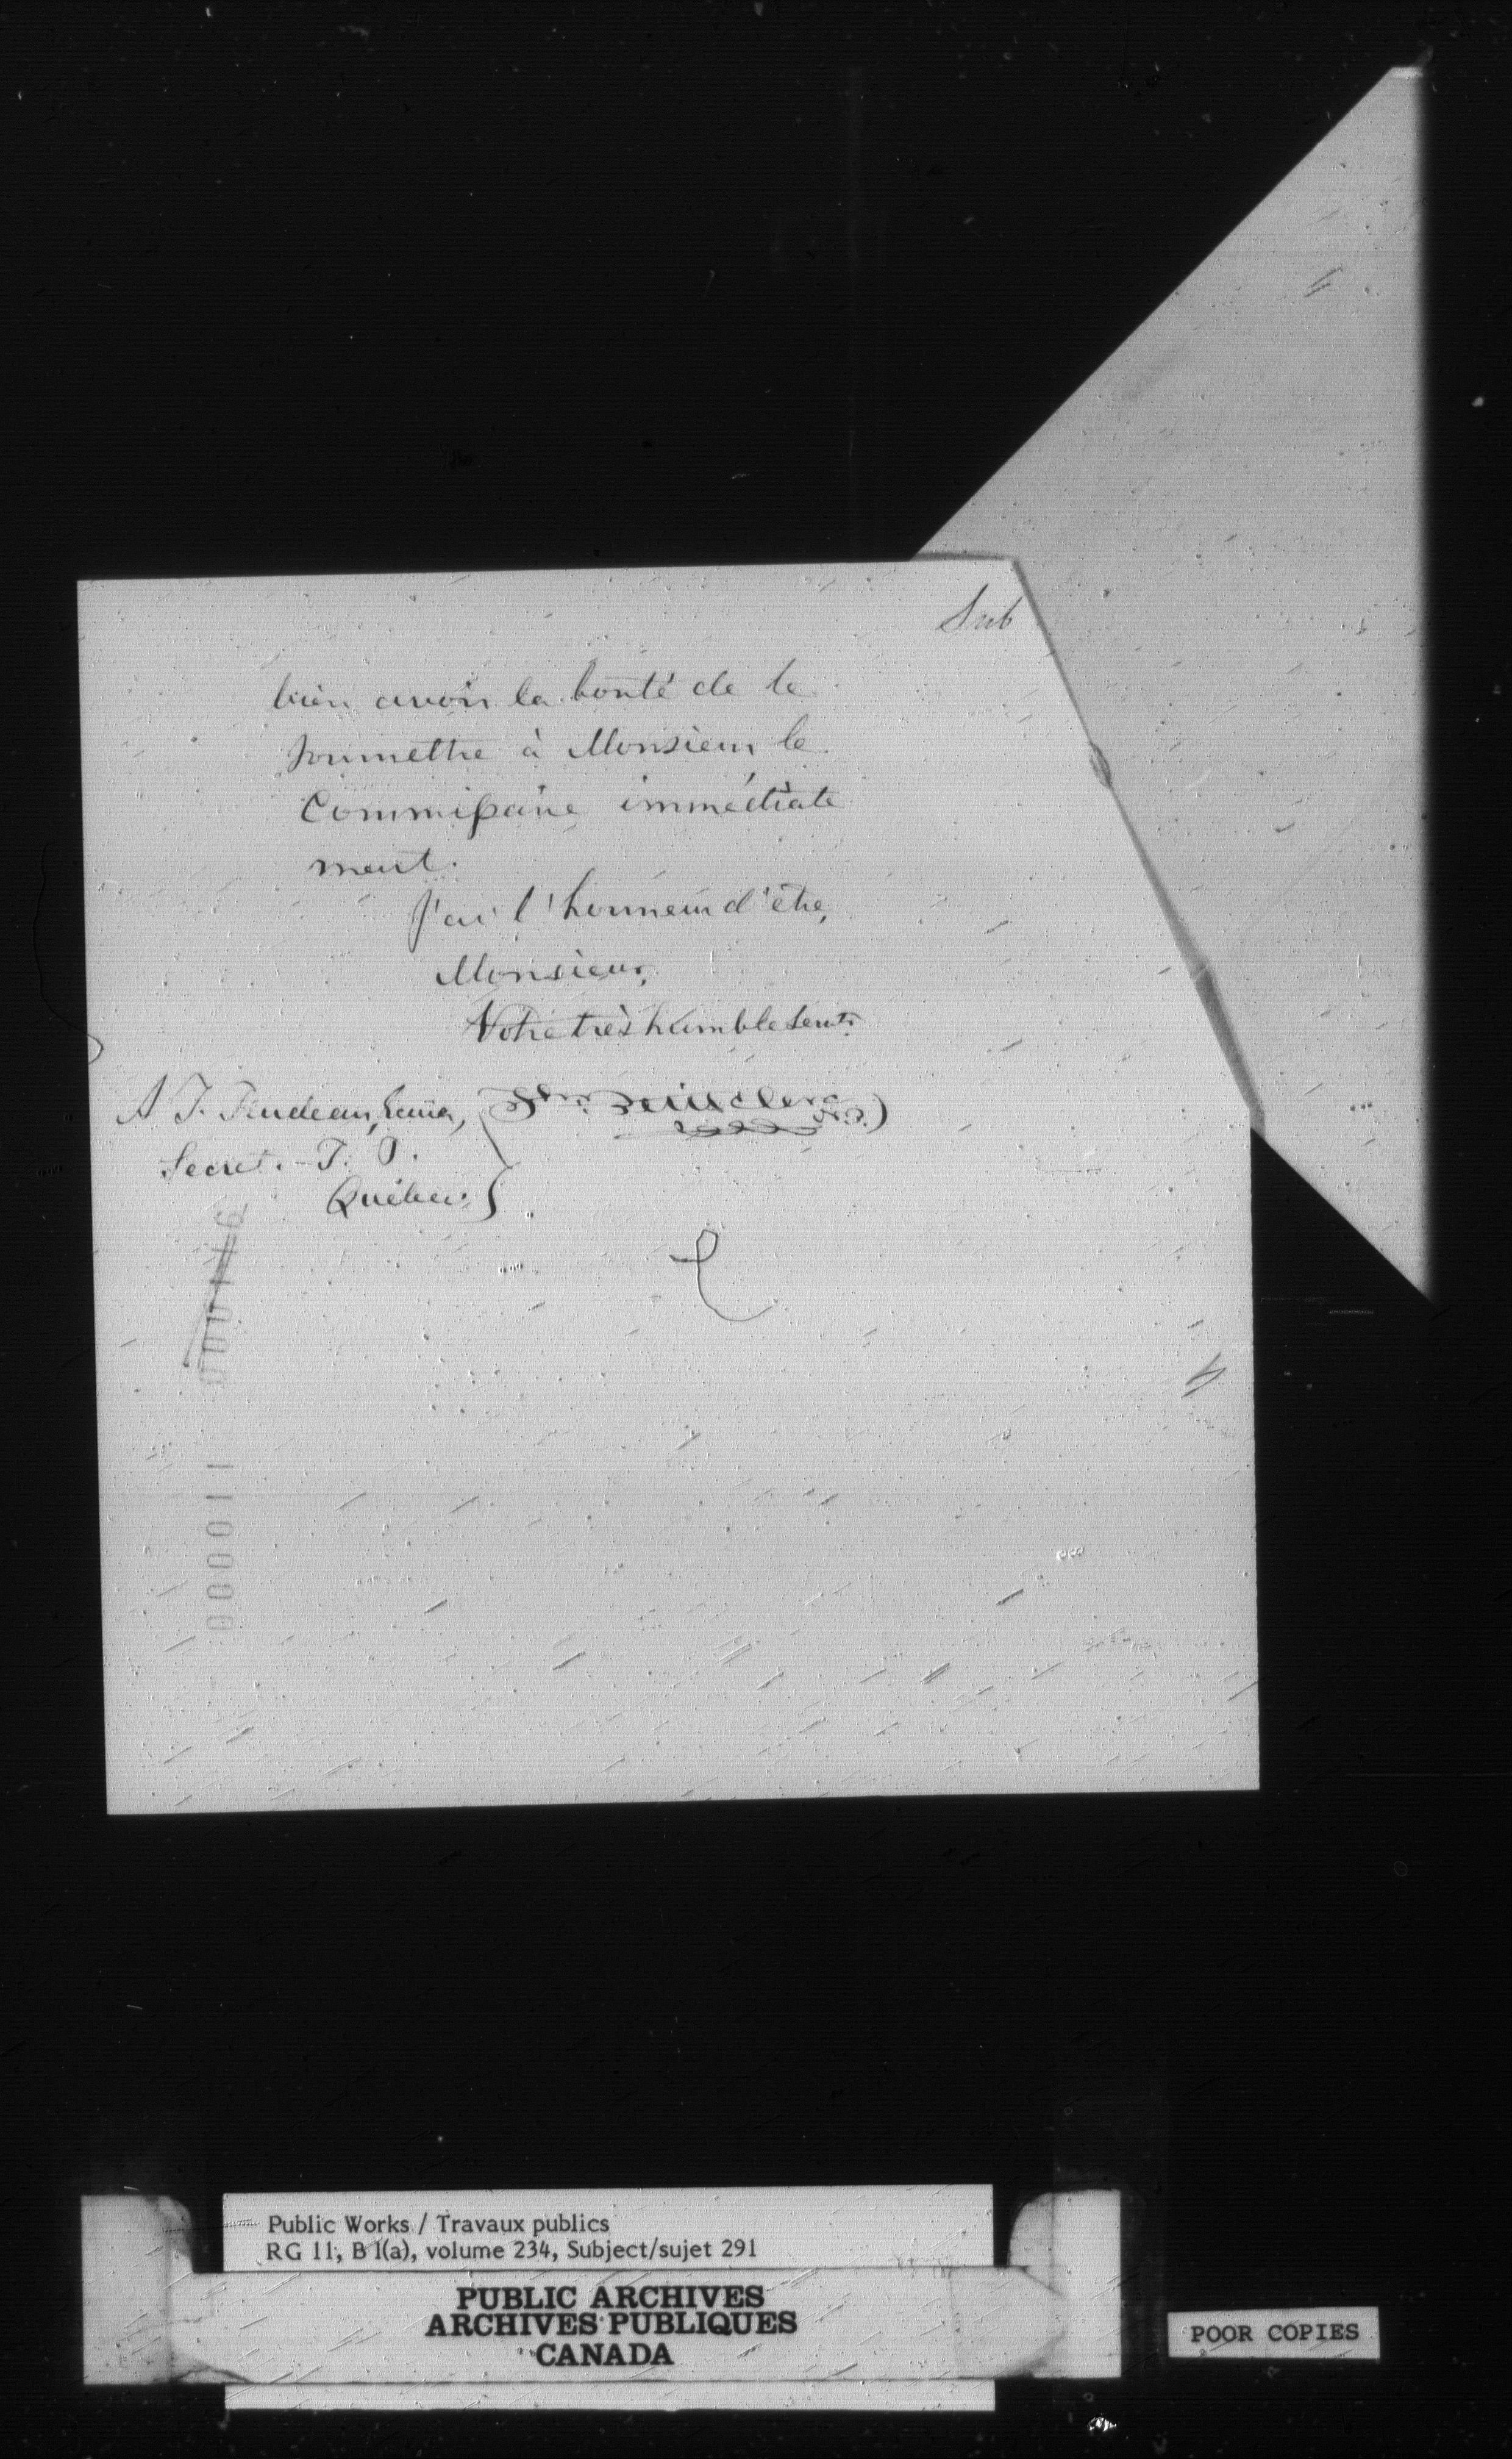 Sub
bien avoir la bonté de le
soumettre à Monsieur le
Commissaire immédiate
ment.
J'ai l'honneur d'être,
Monsieur,
Votre très humble servt.
A T. Trudeau,
Secret. T. P.
Québec.
000011
Public Works / Travaux publics
RG 11, B1(a), volume 234, Subject/sujet 291
PUBLIC ARCHIVES
ARCHIVES PUBLIQUES
CANADA
POOR COPIES